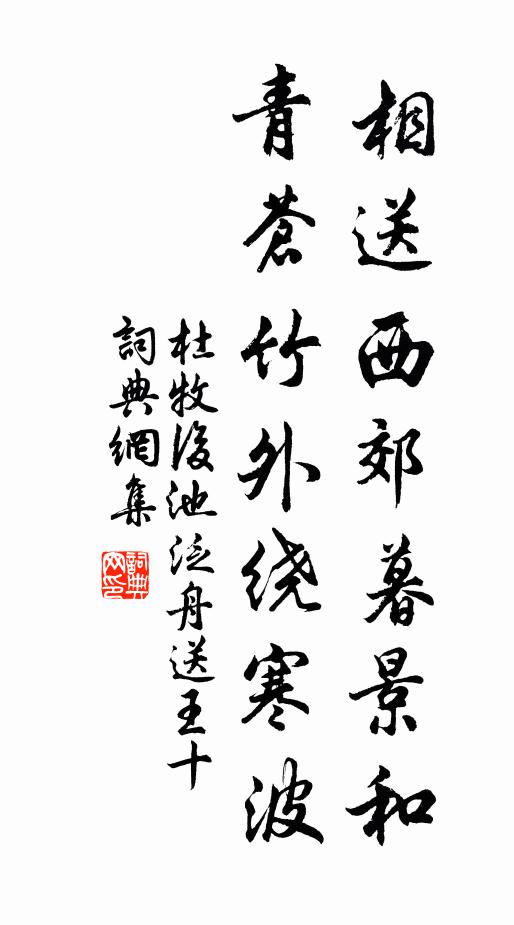 相送西郊暮景和
青蒼竹外绕寒波
杜牧後池泛舟送王十
詞典網集
詞典网印